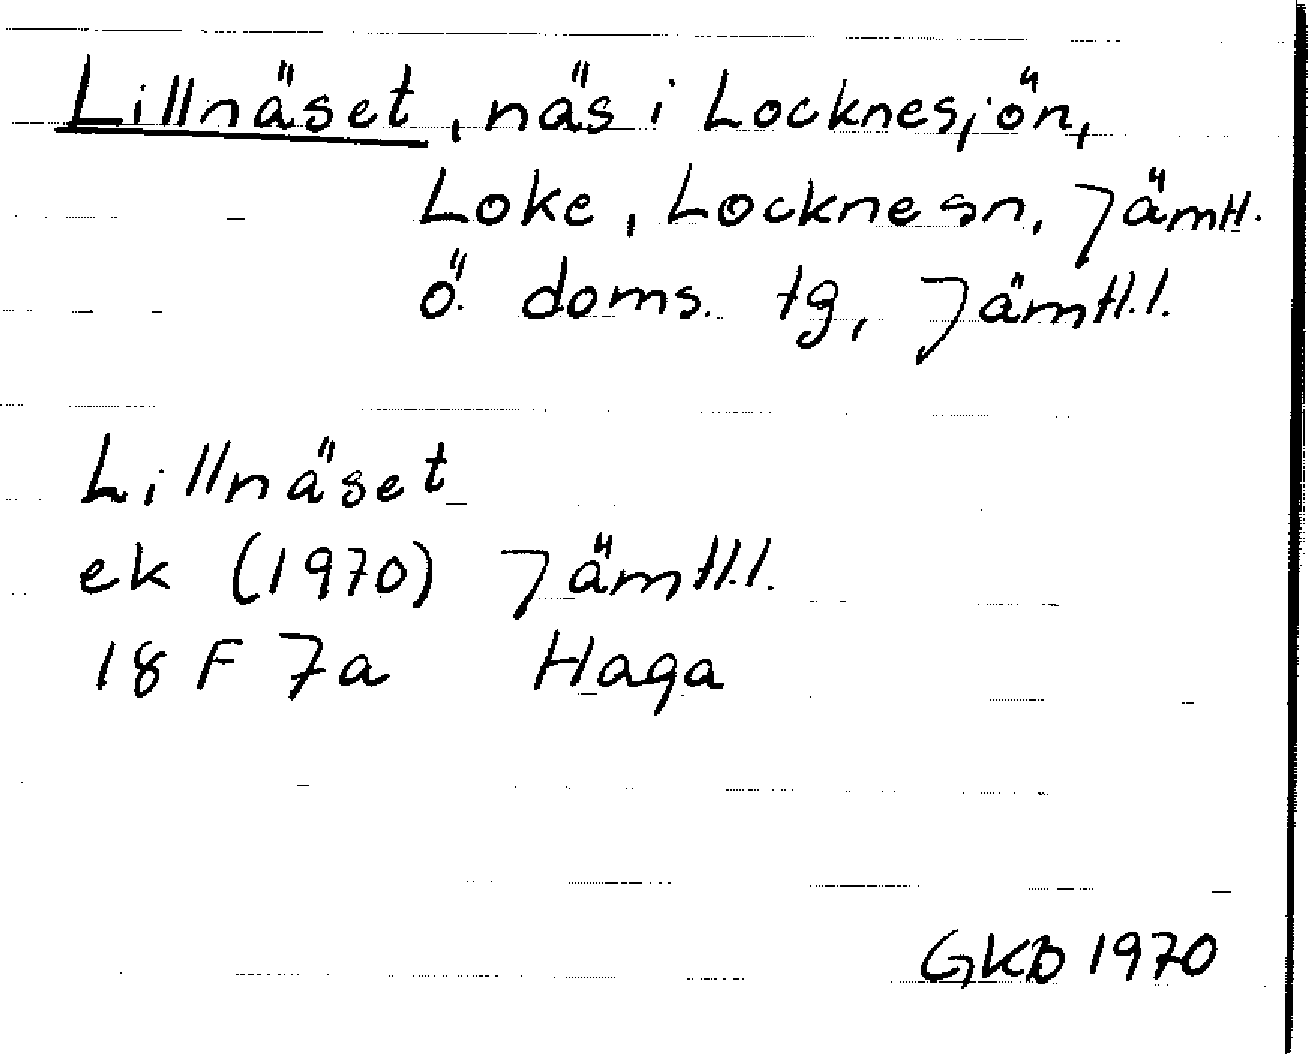 Lillnäset, näs i Locknesjön,
Loke, Locknesn, Jämtl.
ö. doms. tg, Jämtl.l.
Lillnäset
ek (1970) Jämtl.l.
18 F 7a Haga
GKB 1970